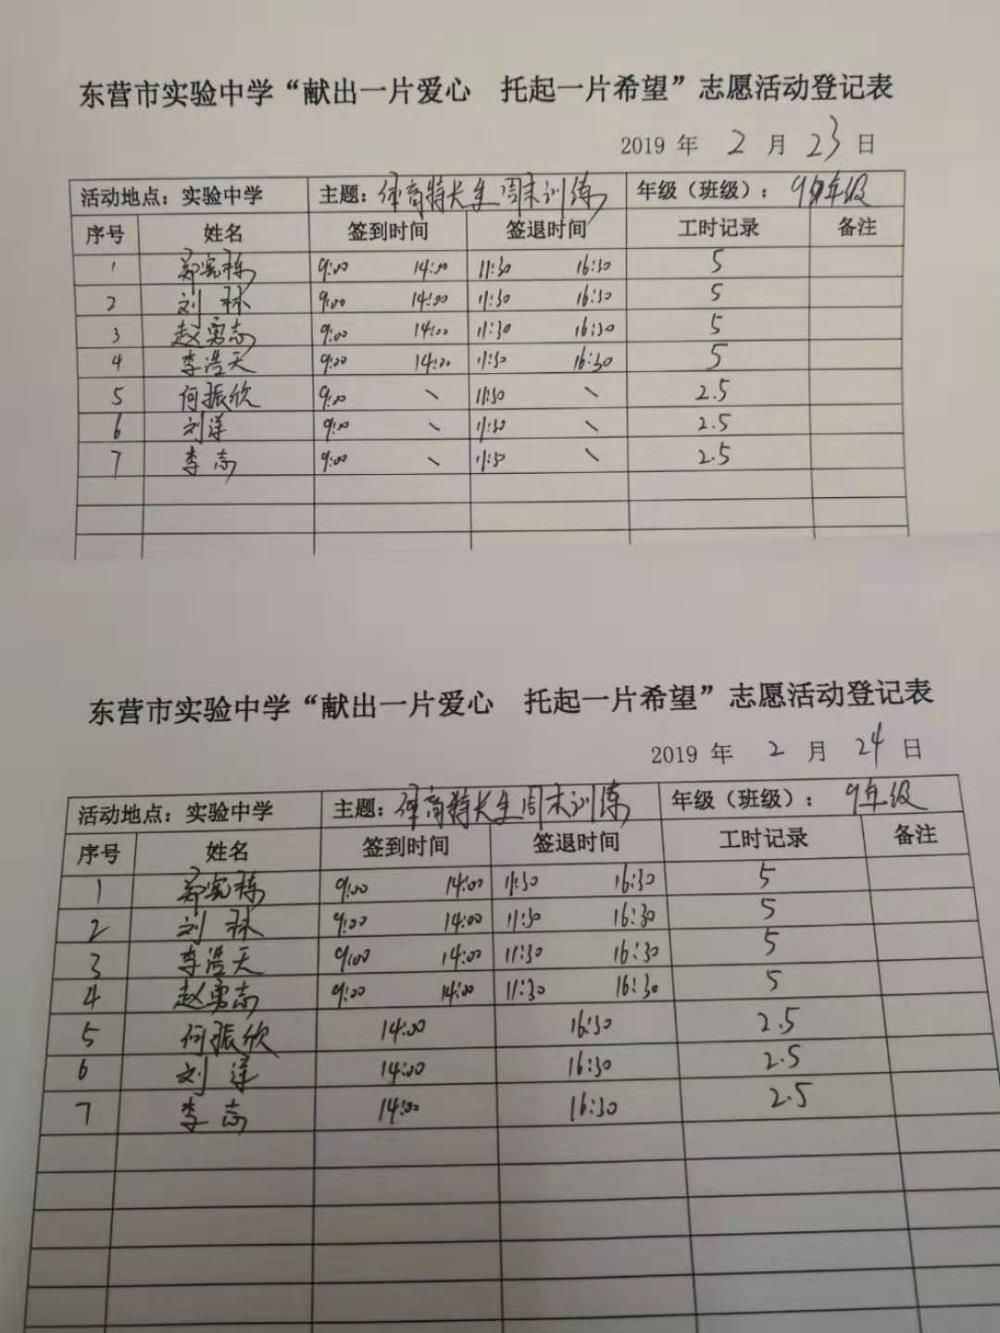 东营市实验中学“献出一片爱心 托起一片希望”志愿活动登记表
2019 年 2 月 23 日
活动地点：实验中学 主题：体育特长生周末训练 年级（班级）：9年级
序号 姓名 签到时间 签退时间 工时记录 备注
1 郑宪栋 9:00 14:00 11:30 16:30 5
2 刘林 9:00 14:00 11:30 16:30 5
3 赵勇志 9:00 14:00 11:30 16:30 5
4 李浩天 9:00 14:00 11:30 16:30 5
5 何振欣 9:00 \ 11:30 \ 2.5
6 刘洋 9:00 \ 11:30 \ 2.5
7 李志 9:00 \ 11:30 \ 2.5
东营市实验中学“献出一片爱心 托起一片希望”志愿活动登记表
2019 年 2 月 24 日
活动地点：实验中学 主题：体育特长生周末训练 年级（班级）：9年级
序号 姓名 签到时间 签退时间 工时记录 备注
1 郑宪栋 9:00 14:00 11:30 16:30 5
2 刘林 9:00 14:00 11:30 16:30 5
3 李浩天 9:00 14:00 11:30 16:30 5
4 赵勇志 9:00 14:00 11:30 16:30 5
5 何振欣 14:00 16:30 2.5
6 刘洋 14:00 16:30 2.5
7 李志 14:00 16:30 2.5